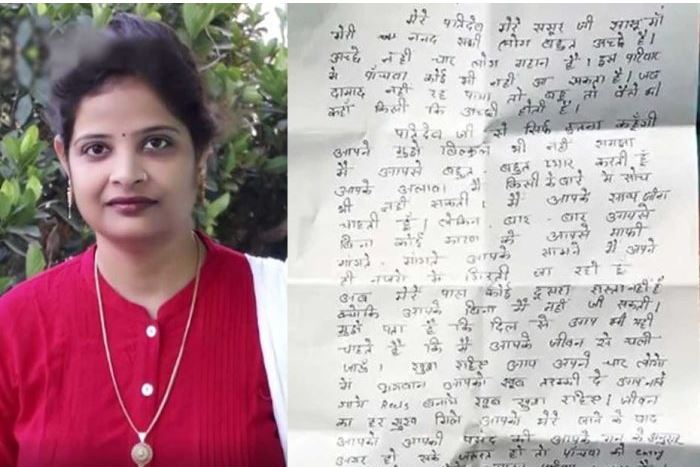 मेरे पतिदेव मेरे ससुर जी सासू माँ
मेरी ननद सभी लोग बहुत अच्छे हैं।
अच्छे नही चार लोग महान हैं। इस परिवार
में पाँचवा कोई भी नहीं आ सकता है। जब
दामाद नहीं रह पाया तो बहू तो वैसे भी
कहाँ किसी कि अच्छी होती है।
पतिदेव जी से सिर्फ इतना कहूँगी
आपने मुझे बिल्कुल भी नहीं समझा
मैं आपसे बहुत - बहुत प्यार करती हूँ
आपके अलावा मैं किसी के बारे में सोच
भी नहीं सकती। मैं आपके साथ जीना
चाहती हूँ। लेकिन बार - बार आपसे
बिना कोई कारण के आपसे माफी
मांगते - मांगते आपके सामने मैं अपने
ही नजरों में गिरती जा रही हूँ
अब मेरे पास कोई दूसरा रास्ता नहीं है
क्योंकि आपके बिना मैं नहीं जी सकती।
मुझे पता है कि दिल से आप भी यही
चाहते हैं कि मैं आपके जीवन से चली
जाऊँ। खुश रहिए आप अपने चार लोगों
में भगवान आपको खूब तरक्की दे आप नाचे
गाये Reels बनाये खूब खुश रहिए। जीवन
का हर सुख मिले आपको मेरे जाने के बाद
आपको आपकी पसंद की आपके मन के अनुसार
अगर हो सके जरूरत हो तो पाँचवा की entry